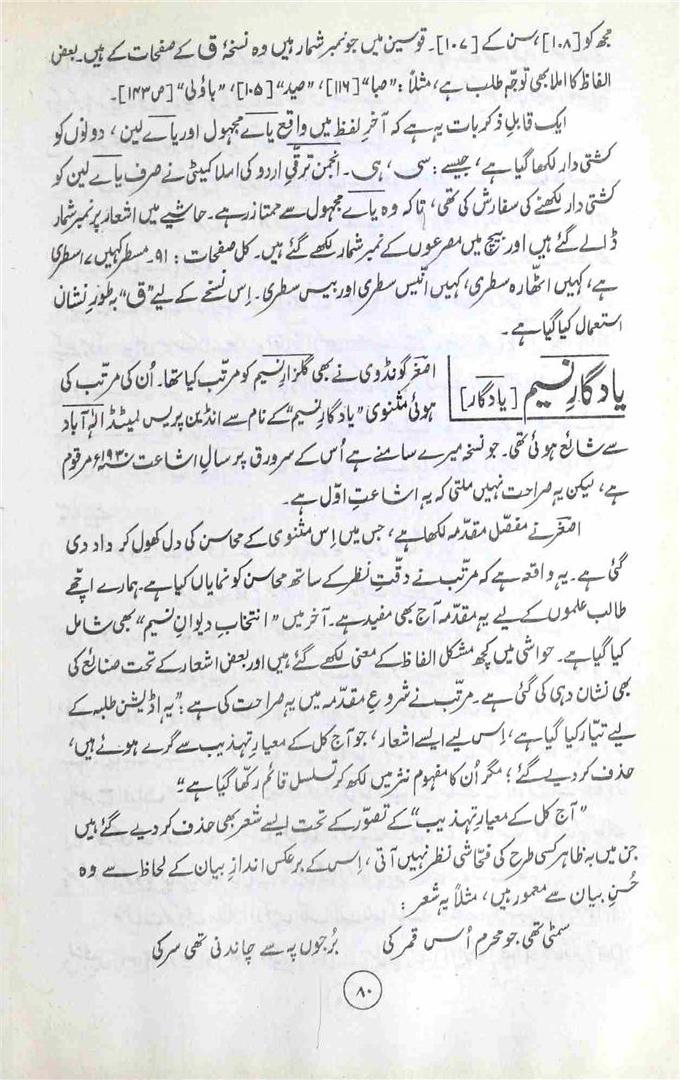 مجھ کو [۱۰۸]، سن کے [۱۰۷]۔ قوسین میں جو نمبر شمار ہیں وہ نسخۂ ق کے صفحات کے ہیں۔ بعض
الفاظ کا املا بھی توجّہ طلب ہے، مثلاً: ”صبا“ [۱۱۶]، ”صید“ [۱۰۵]، ”باؤلی“ [ص۱۴۳]۔
ایک قابلِ ذکر بات یہ ہے کہ آخرِ لفظ میں واقع یاے مجہول اور یاے لین، دونوں کو
کشتی دار لکھا گیا ہے، جیسے: سی، ہی۔ انجمن ترقّیِ اردو کی املا کمیٹی نے صرف یاے لین کو
کشتی دار لکھنے کی سفارش کی تھی، تاکہ وہ یاے مجہول سے ممتاز رہے۔ حاشیے میں اشعار پر نمبر شمار
ڈالے گئے ہیں اور بیچ میں مصرعوں کے نمبر شمار لکھے گئے ہیں۔ کل صفحات: ۹۱۔ مسطر کہیں ۱۷ سطری
ہے، کہیں اٹھّارہ سطری، کہیں انّیس سطری اور بیس سطری۔ اِس نسخے کے لیے ”ق“ بہ طورِ نشان
استعمال کیا گیا ہے۔
یادگارِ نسیم [یادگار] اصغر گونڈوی نے بھی گلزارِ نسیم کو مرتّب کیا تھا۔ اُن کی مرتّب کی
ہوئی مثنوی ”یادگارِ نسیم“ کے نام سے انڈین پریس لمیٹڈ الٰہ آباد
سے شائع ہوئی تھی۔ جو نسخہ میرے سامنے ہے اُس کے سرورق پر سالِ اشاعت ۱۹۳۰ء مرقوم
ہے، لیکن یہ صراحت نہیں ملتی کہ یہ اشاعتِ اوّل ہے۔
اصغر نے مفصّل مقدّمہ لکھا ہے، جس میں اِس مثنوی کے محاسن کی دل کھول کر داد دی
گئی ہے۔ یہ واقعہ ہے کہ مرتّب نے دقّتِ نظر کے ساتھ محاسن کو نمایاں کیا ہے۔ ہمارے اچھّے
طالب علموں کے لیے یہ مقدّمہ آج بھی مفید ہے۔ آخر میں ”انتخابِ دیوانِ نسیم“ بھی شامل
کیا گیا ہے۔ حواشی میں کچھ مشکل الفاظ کے معنی لکھے گئے ہیں اور بعض اشعار کے تحت صنائع کی
بھی نشان دہی کی گئی ہے۔ مرتّب نے شروعِ مقدّمہ میں یہ صراحت کی ہے: ”یہ اڈیشن طلبہ کے
لیے تیّار کیا گیا ہے، اِس لیے ایسے اشعار، جو آج کل کے معیارِ تہذیب سے گرے ہوئے ہیں،
حذف کر دیے گئے؛ مگر اُن کا مفہوم نثر میں لکھ کر تسلسل قائم رکھّا گیا ہے“
”آج کل کے معیارِ تہذیب“ کے تصوّر کے تحت ایسے شعر بھی حذف کر دیے گئے ہیں
جن میں بہ ظاہر کسی طرح کی فحّاشی نظر نہیں آتی، اِس کے برعکس اندازِ بیان کے لحاظ سے وہ
حُسنِ بیان سے معمور ہیں، مثلاً یہ شعر:
سمٹی تھی جو محرم اُس قمر کی بُرجوں پہ سے چاندنی تھی سرکی
۸۰